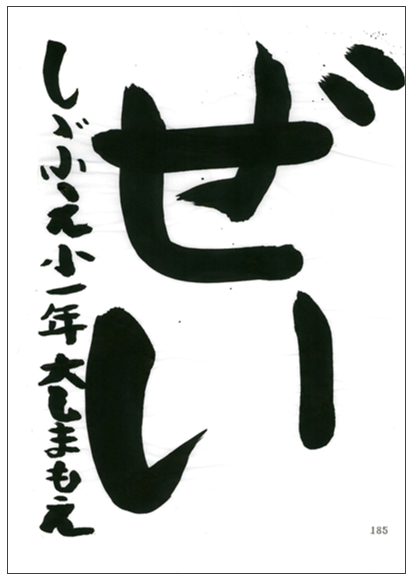 ぜい
しゞふえ小一年大しまもえ
185